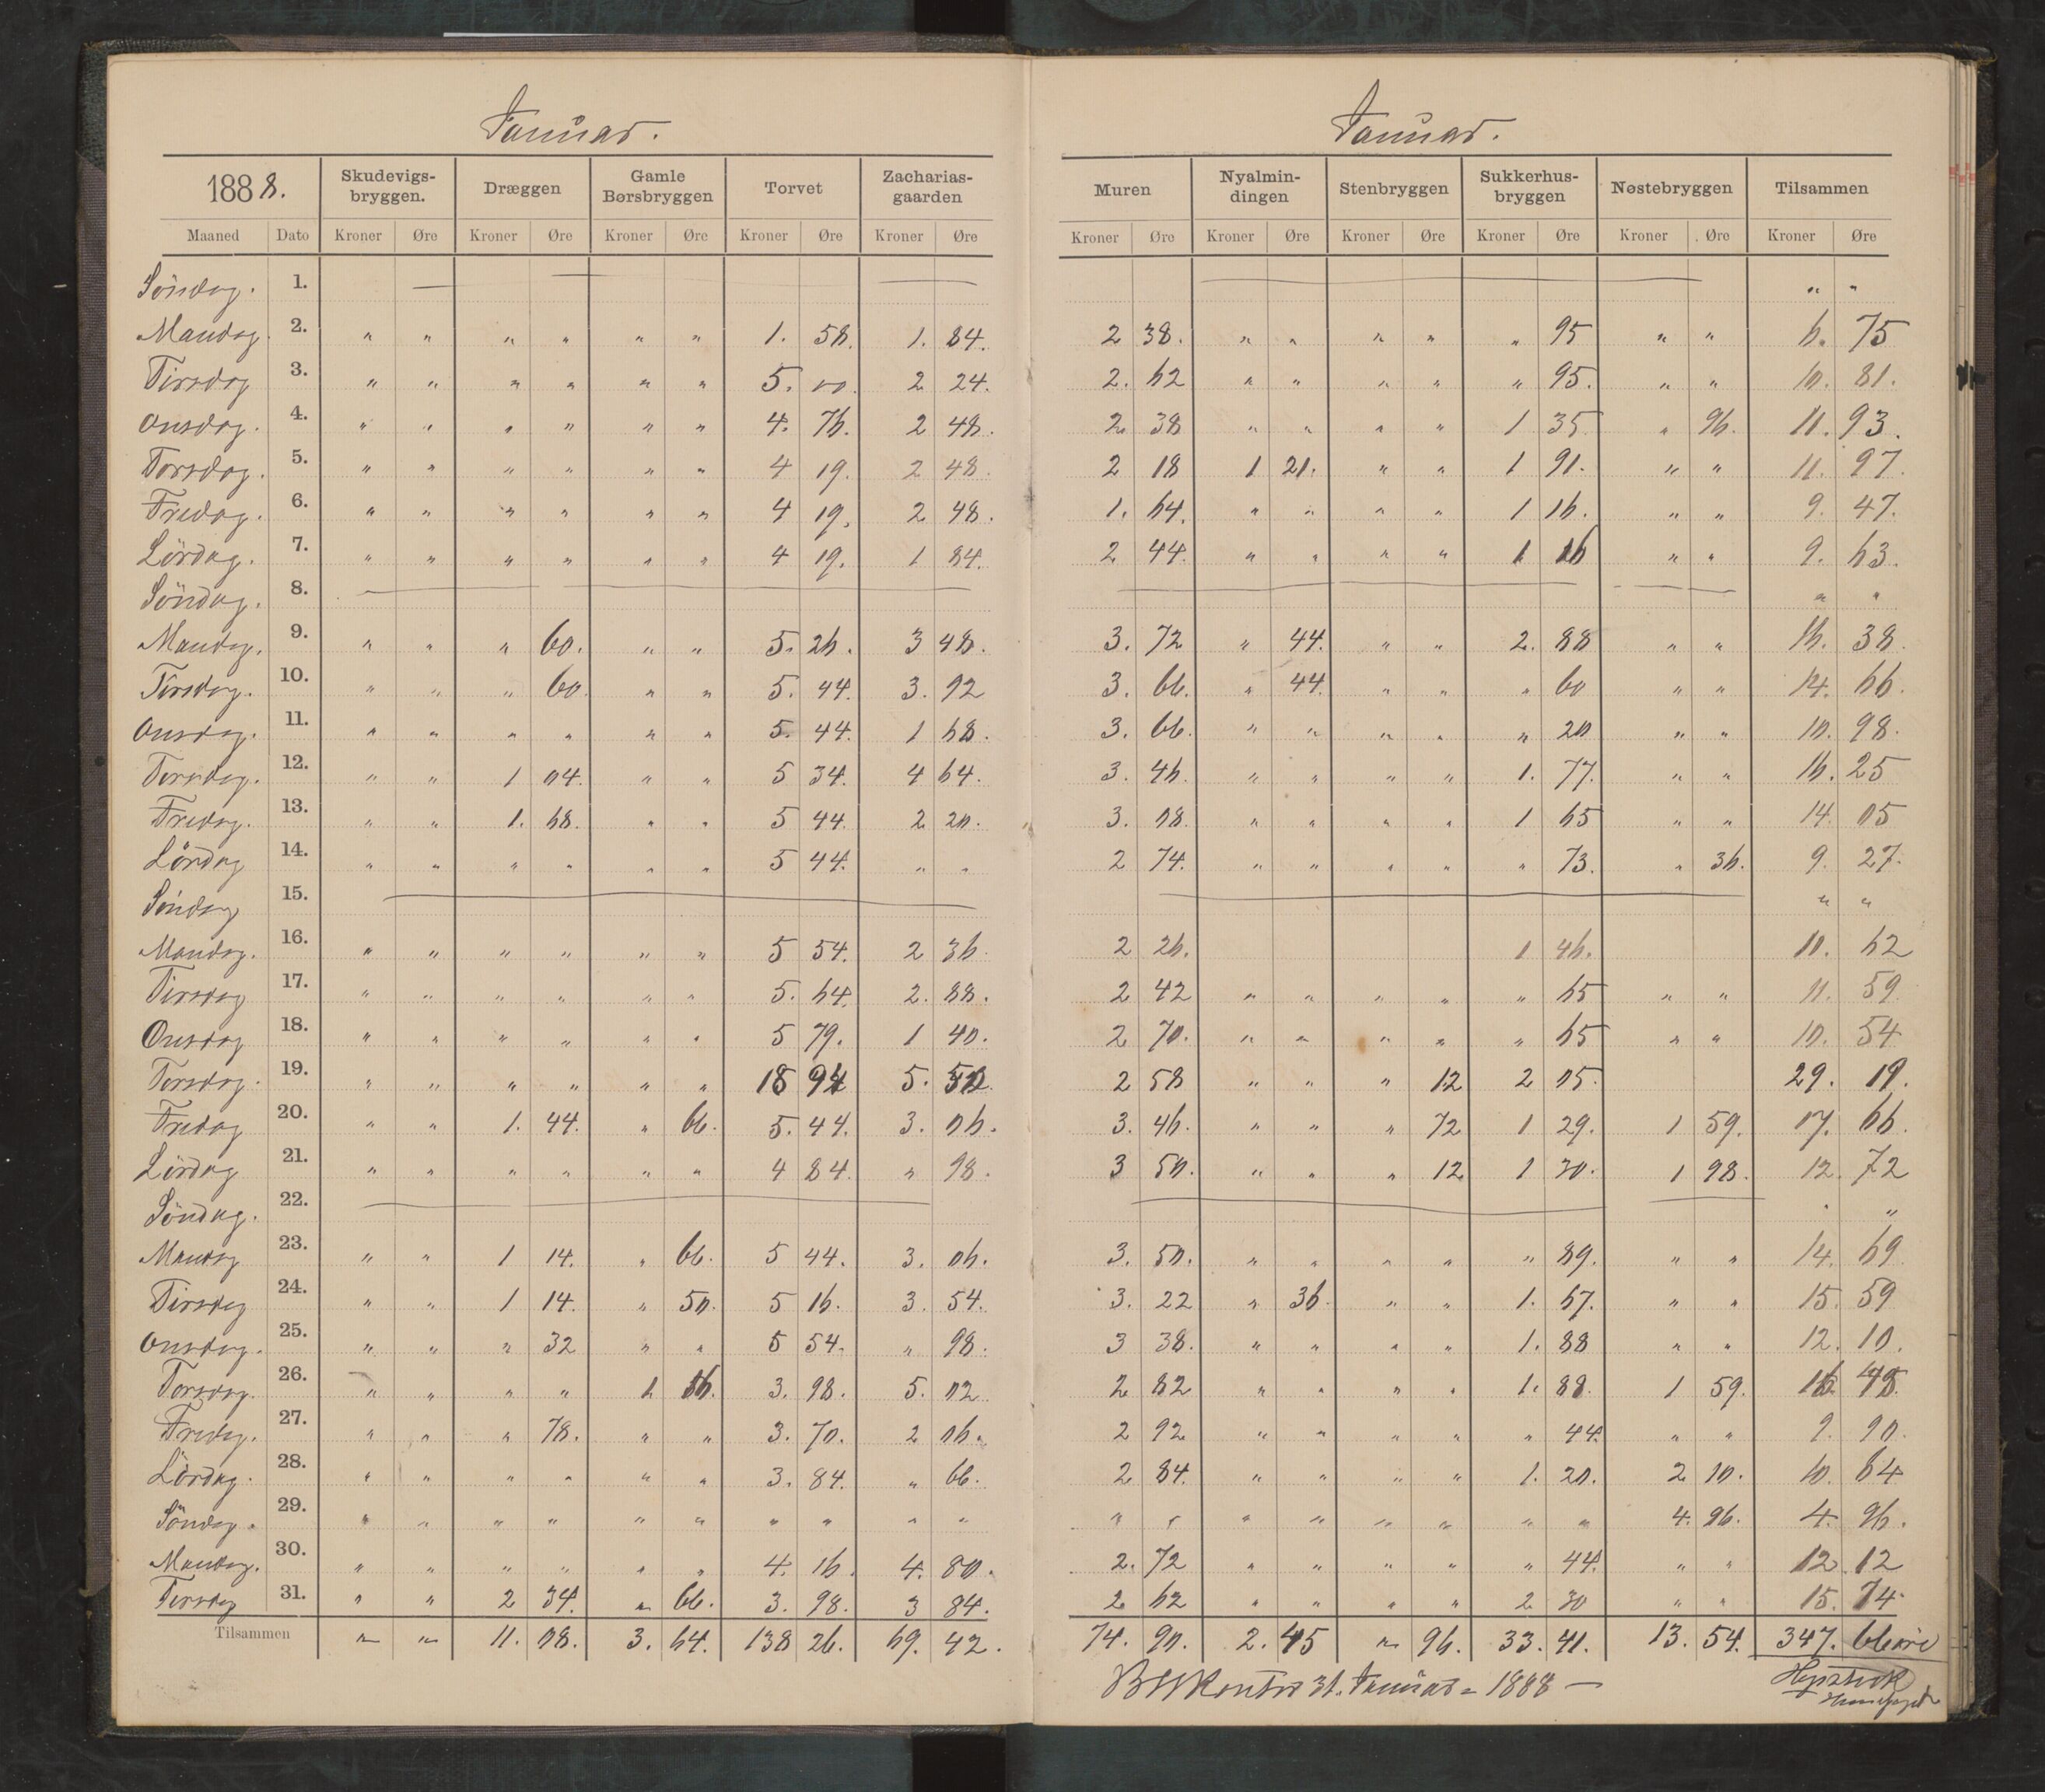 Januar.
1888. Skudevigs-bryggen. Dræggen Gamle Børsbryggen Torvet Zacharias-gaarden
Maaned Dato Kroner Øre Kroner Øre Kroner Øre Kroner Øre Kroner Øre
Söndag. 1. —
Mandag. 2. " " " " " " 1. 58. 1. 84.
Tirsdag 3. " " " " " " 5. 00. 2 24.
Onsdag. 4. " " " " " " 4. 76. 2 48.
Torsdag. 5. " " " " " " 4 19. 2 48.
Fredag. 6. " " " " " " 4 19. 2 48.
Lördag. 7. " " " " " " 4 19. 1 84.
Söndag. 8. —
Mandag. 9. " " " 60. " " 5. 26. 3 48.
Tirsdag. 10. " " " 60. " " 5. 44. 3. 92
Onsdag. 11. " " " " " " 5. 44. 1 68.
Torsdag. 12. " " 1 04. " " 5 34. 4 64.
Fredag. 13. " " 1. 68. " " 5 44. 2 20.
Lördag 14. " " " " " " 5 44. " "
Söndag 15. —
Mandag. 16. " " " " " " 5 54. 2 36
Tirsdag 17. " " " " " " 5. 64. 2. 88.
Onsdag 18. " " " " " " 5 79. 1 40.
Torsdag. 19. " " " " " " 18 94 5. 50.
Fredag 20. " " 1. 44. " 66. 5. 44. 3. 06.
Lördag 21. " " " " " " 4 84. " 98.
Söndag. 22. —
Mandag 23. " " 1 14. " 66. 5 44. 3. 06.
Tirsdag 24. " " 1 14. " 50. 5 16. 3. 54.
Onsdag. 25. " " " 32 " " 5 54. " 98.
Torsdag. 26. " " " " 1 16. 3. 98. 5. 02
Fredag. 27. " " " 78. " " 3. 70. 2 06.
Lördag. 28. " " " " " " 3. 84. " 66.
Söndag. 29. " " " " " " " " " "
Mandag. 30. " " " " " " 4. 16. 4. 80.
Tirsdag 31. " " 2 34. " 66. 3. 98. 3 84.
Tilsammen " " 11. 08. 3. 64. 138 26. 69. 42.
Januar.
Muren Nyalmin-dingen Stenbryggen Sukkerhus-bryggen Nøstebryggen Tilsammen
Kroner Øre Kroner Øre Kroner Øre Kroner Øre Kroner Øre Kroner Øre
— " "
2 38. " " " " " 95 " " 6. 75
2. 62 " " " " " 95. " " 10. 81.
2 38 " " " " 1 35 " 96. 11. 93.
2 18 1 21. " " 1 91. " " 11. 97.
1. 64. " " " " 1 16. " " 9. 47.
2 44. " " " " 1 16 " " 9. 63.
— " "
3. 72 " 44. " " 2. 88 " " 16. 38.
3. 66. " 44. " " " 60 " " 14. 66.
3. 66. " " " " " 20 " " 10. 98.
3. 46. " " " " 1. 77. " " 16. 25
3. 08. " " " " 1 65 " " 14. 05
2 74. " " " " " 73. " 36. 9. 27.
— " "
2 26. 1 46. 11. 62
2 42 " " " " " 65 " " 11. 59
2 70. " " " " " 65 " " 10. 54
2 58 " " " 12 2 05. 29. 19.
3. 46. " " " 72 1 29. 1 59. 17. 66.
3 50. " " " 12 1 30. 1 98. 12. 72
— " "
3. 50. " " " " " 89. " " 14. 69
3. 22 " 36 " " 1. 67. " " 15. 59
3 38. " " " " 1. 88 " " 12. 10.
2 82 " " " " 1. 88. 1 59. 16 45.
2 92 " " " " " 44. " " 9. 90.
2 84. " " " " 1. 20. 2 10. 10. 64
" " " " " " " " 4. 96. 4. 96.
2. 72 " " " " " 44. " " 12. 12
2 62 " " " " 2 30 " " 15. 74.
74. 90. 2. 45 " 96. 33. 41. 13. 54. 347. 66 øre
31. Januar = 1888 —